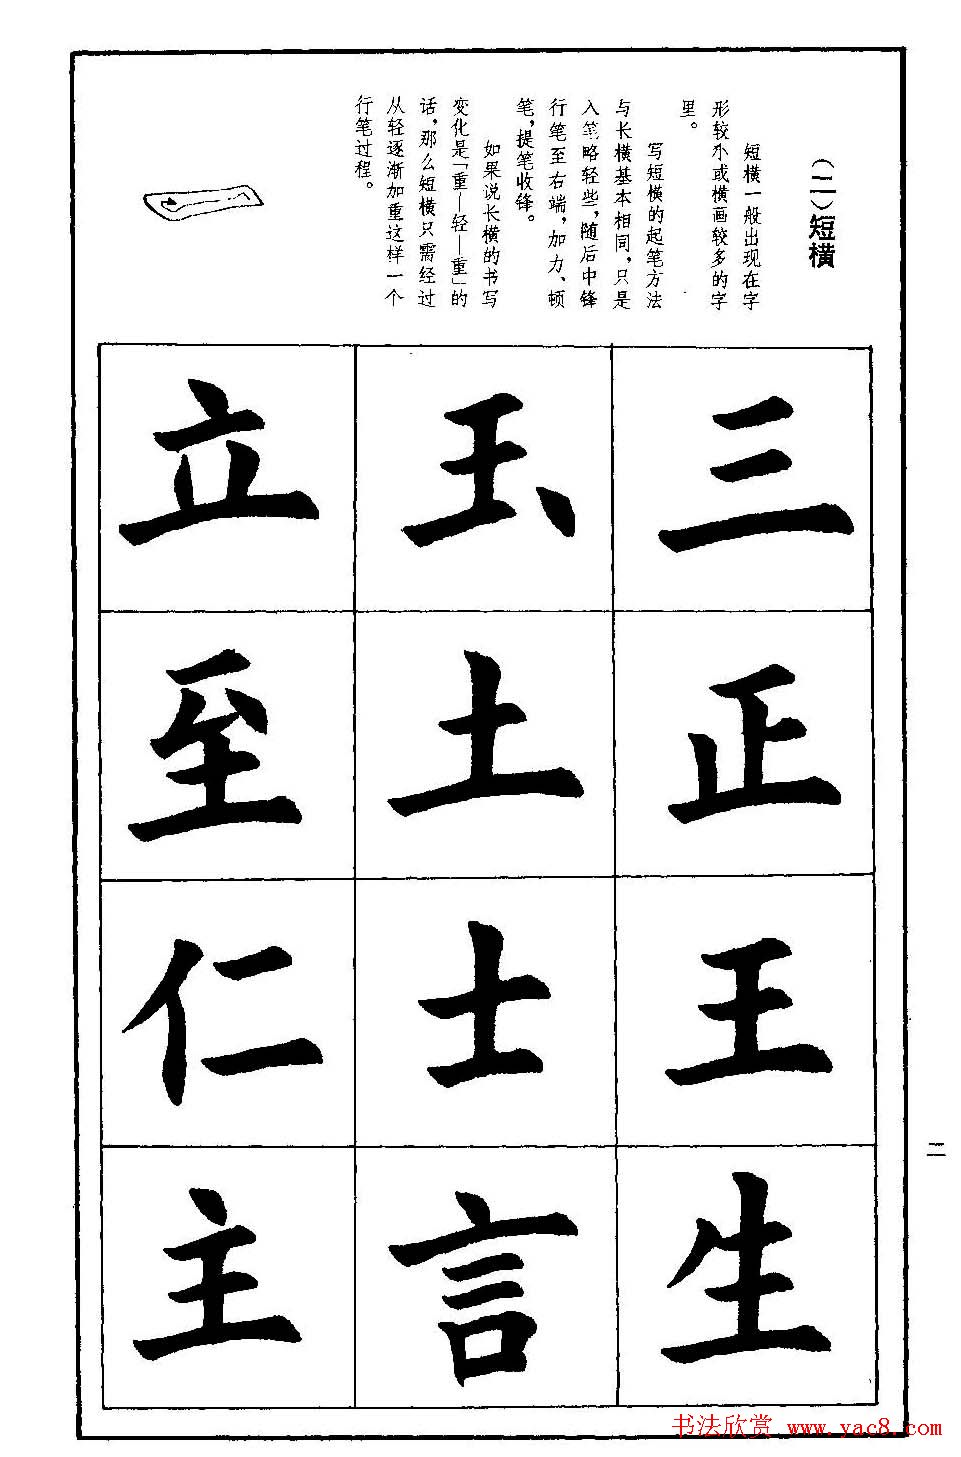 （二）短横
短横一般出现在字
形较小或横画较多的字
里。
写短横的起笔方法
与长横基本相同，只是
入笔略轻些，随后中锋
行笔至右端，加力、顿
笔，提笔收锋。
如果说长横的书写
变化是「重—轻—重」的
话，那么短横只需经过
从轻逐渐加重这样一个
行笔过程。
三
正
王
生
玉
土
士
言
立
至
仁
主
二
书法欣赏 www.yac8.com